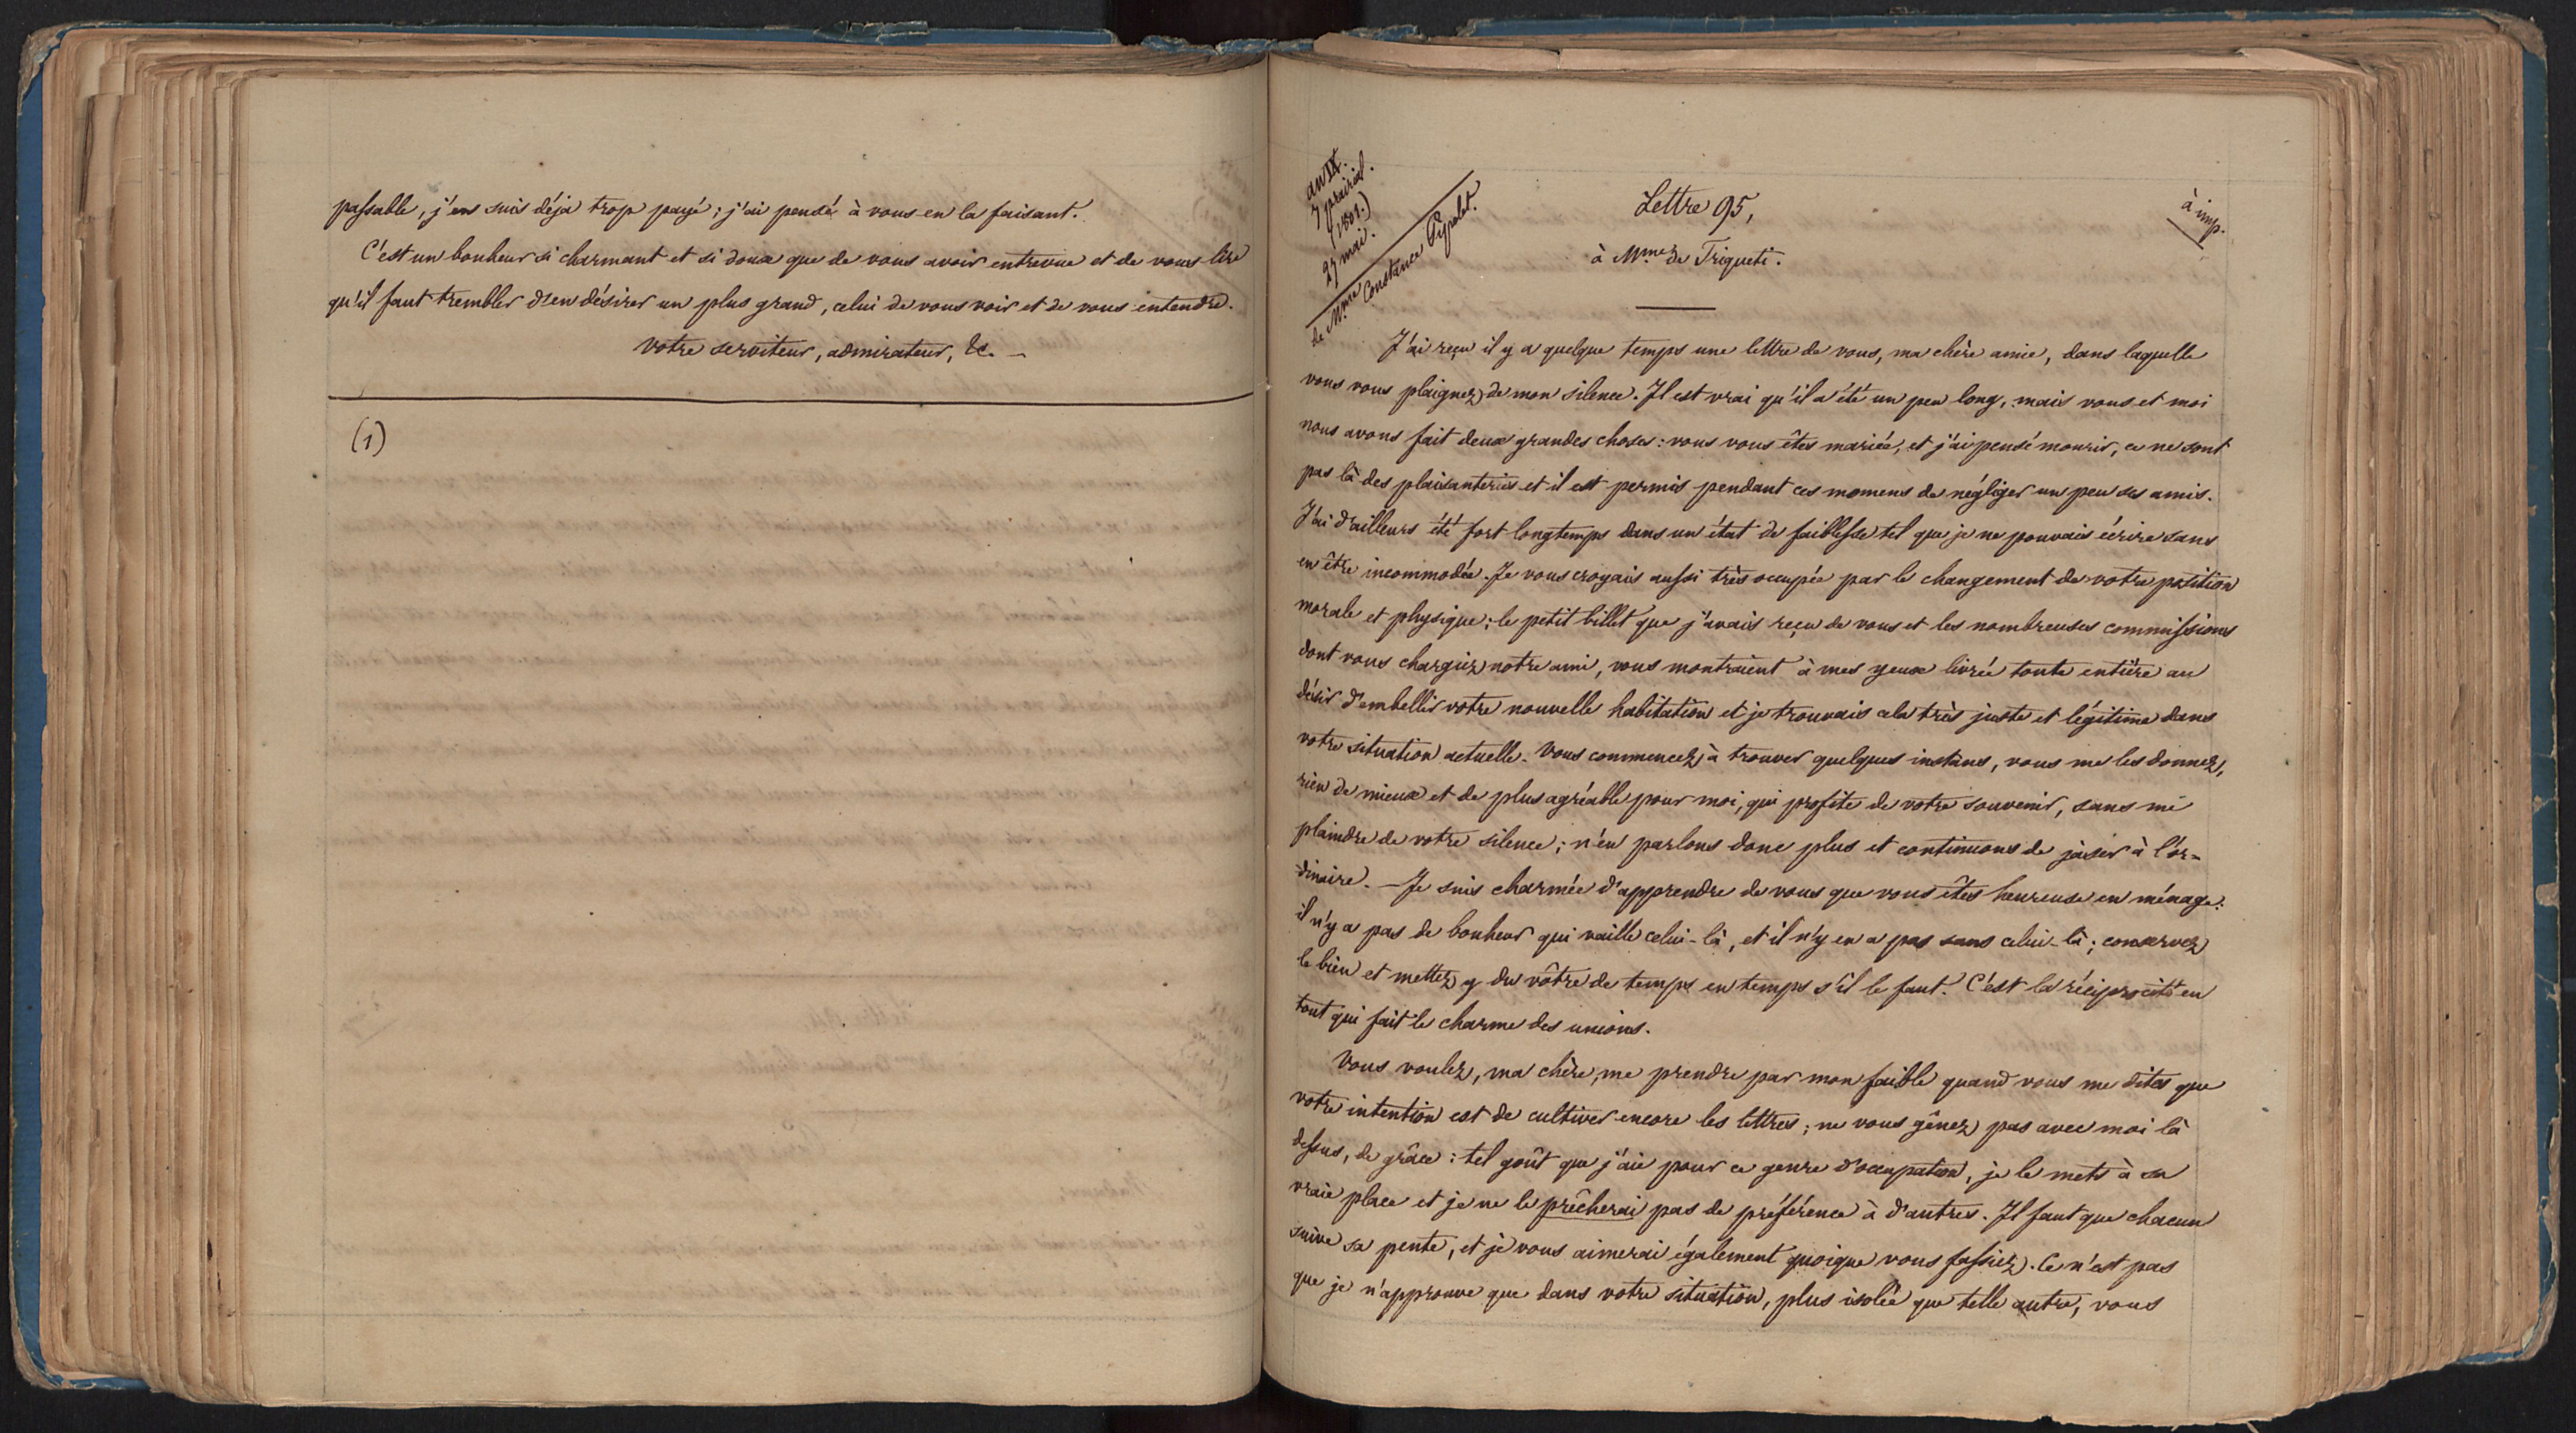 passable, j'en suis déja trop payé; j'ai pensé à vous en la faisant.
C'est un bonheur si charmant et si doux que de vous avoir entrevue et de vous lire
qu'il faut trembler d'en désirer un plus grand, celui de vous voir et de vous entendre.
votre serviteur, admirateur, &c. –
(1)
an IX.
7 prairial.
(1801.)
27 mai.
de Mme Constance Pipelet.
Lettre 95,
à imp.
à Mme de Triqueti.
J'ai reçu il y a quelque temps une lettre de vous, ma chère amie, dans laquelle
vous vous plaignez de mon silence. Il est vrai qu'il a été un peu long, mais vous et moi
nous avons fait deux grandes choses: vous vous êtes mariée, et j'ai pensé mourir, ce ne sont
pas là des plaisanteries et il est permis pendant ces momens de négliger un peu ses amis.
J'ai d'ailleurs été fort longtemps dans un état de faiblesse tel que je ne pouvais écrire sans
en être incommodée. Je vous croyais aussi très occupée par le changement de votre position
morale et physique; le petit billet que j'avais reçu de vous et les nombreuses commissions
dont vous chargiez notre ami, vous montraient à mes yeux livrée toute entière au
désir d'embellir votre nouvelle habitation et je trouvais cela très juste et légitime dans
votre situation actuelle. Vous commencez à trouver quelques instans, vous me les donnez,
rien de mieux et de plus agréable pour moi, qui profite de votre souvenir, sans me
plaindre de votre silence; n'en parlons donc plus et continuons de jaser à l'or=
dinaire. – Je suis charmée d'apprendre de vous que vous êtes heureuse en ménage:
il n'y a pas de bonheur qui vaille celui-là, et il n'y en a pas sans celui-là; conservez
le bien et mettez y du vôtre de temps en temps s'il le faut. C'est la réciprocité en
tout qui fait le charme des unions.
Vous voulez, ma chère, me prendre par mon faible quand vous me dites que
votre intention est de cultiver encore les lettres; ne vous gênez pas avec moi là
dessus, de grâce: tel goût que j'aie pour ce genre d'occupation, je le mets à sa
vraie place et je ne le prêcherai pas de préférence à d'autres. Il faut que chacun
suive sa pente, et je vous aimerai également quoique vous fassiez. Ce n'est pas
que je n'approuve que dans votre situation, plus isolée que telle autre, vous